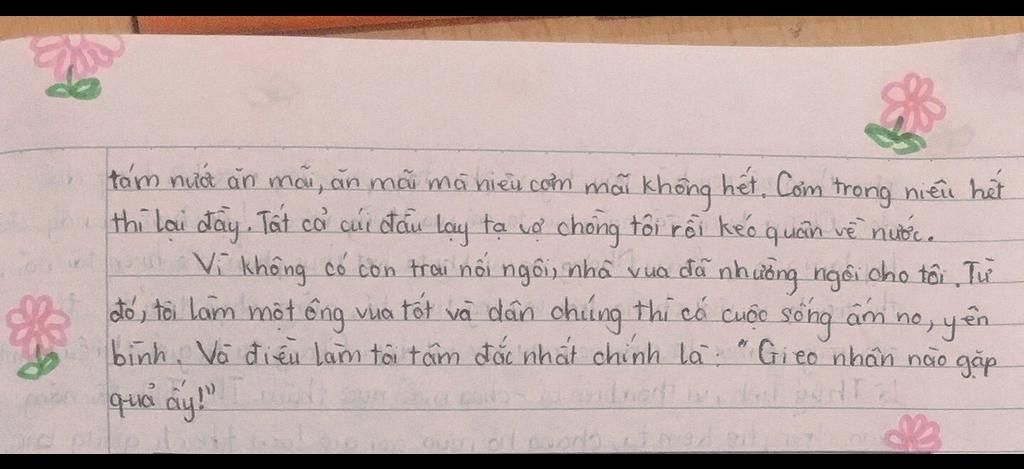 tám nước ăn mãi, ăn mãi mà niêu cơm mãi không hết. Cơm trong niêu hết
thì lại đầy. Tất cả cúi đầu lạy tạ vợ chồng tôi rồi kéo quân về nước.
Vì không có con trai nối ngôi, nhà vua đã nhường ngôi cho tôi. Từ
đó, tôi làm một ông vua tốt và dân chúng thì có cuộc sống ấm no, yên
bình. Và điều làm tôi tâm đắc nhất chính là: "Gieo nhân nào gặp
quả ấy!"